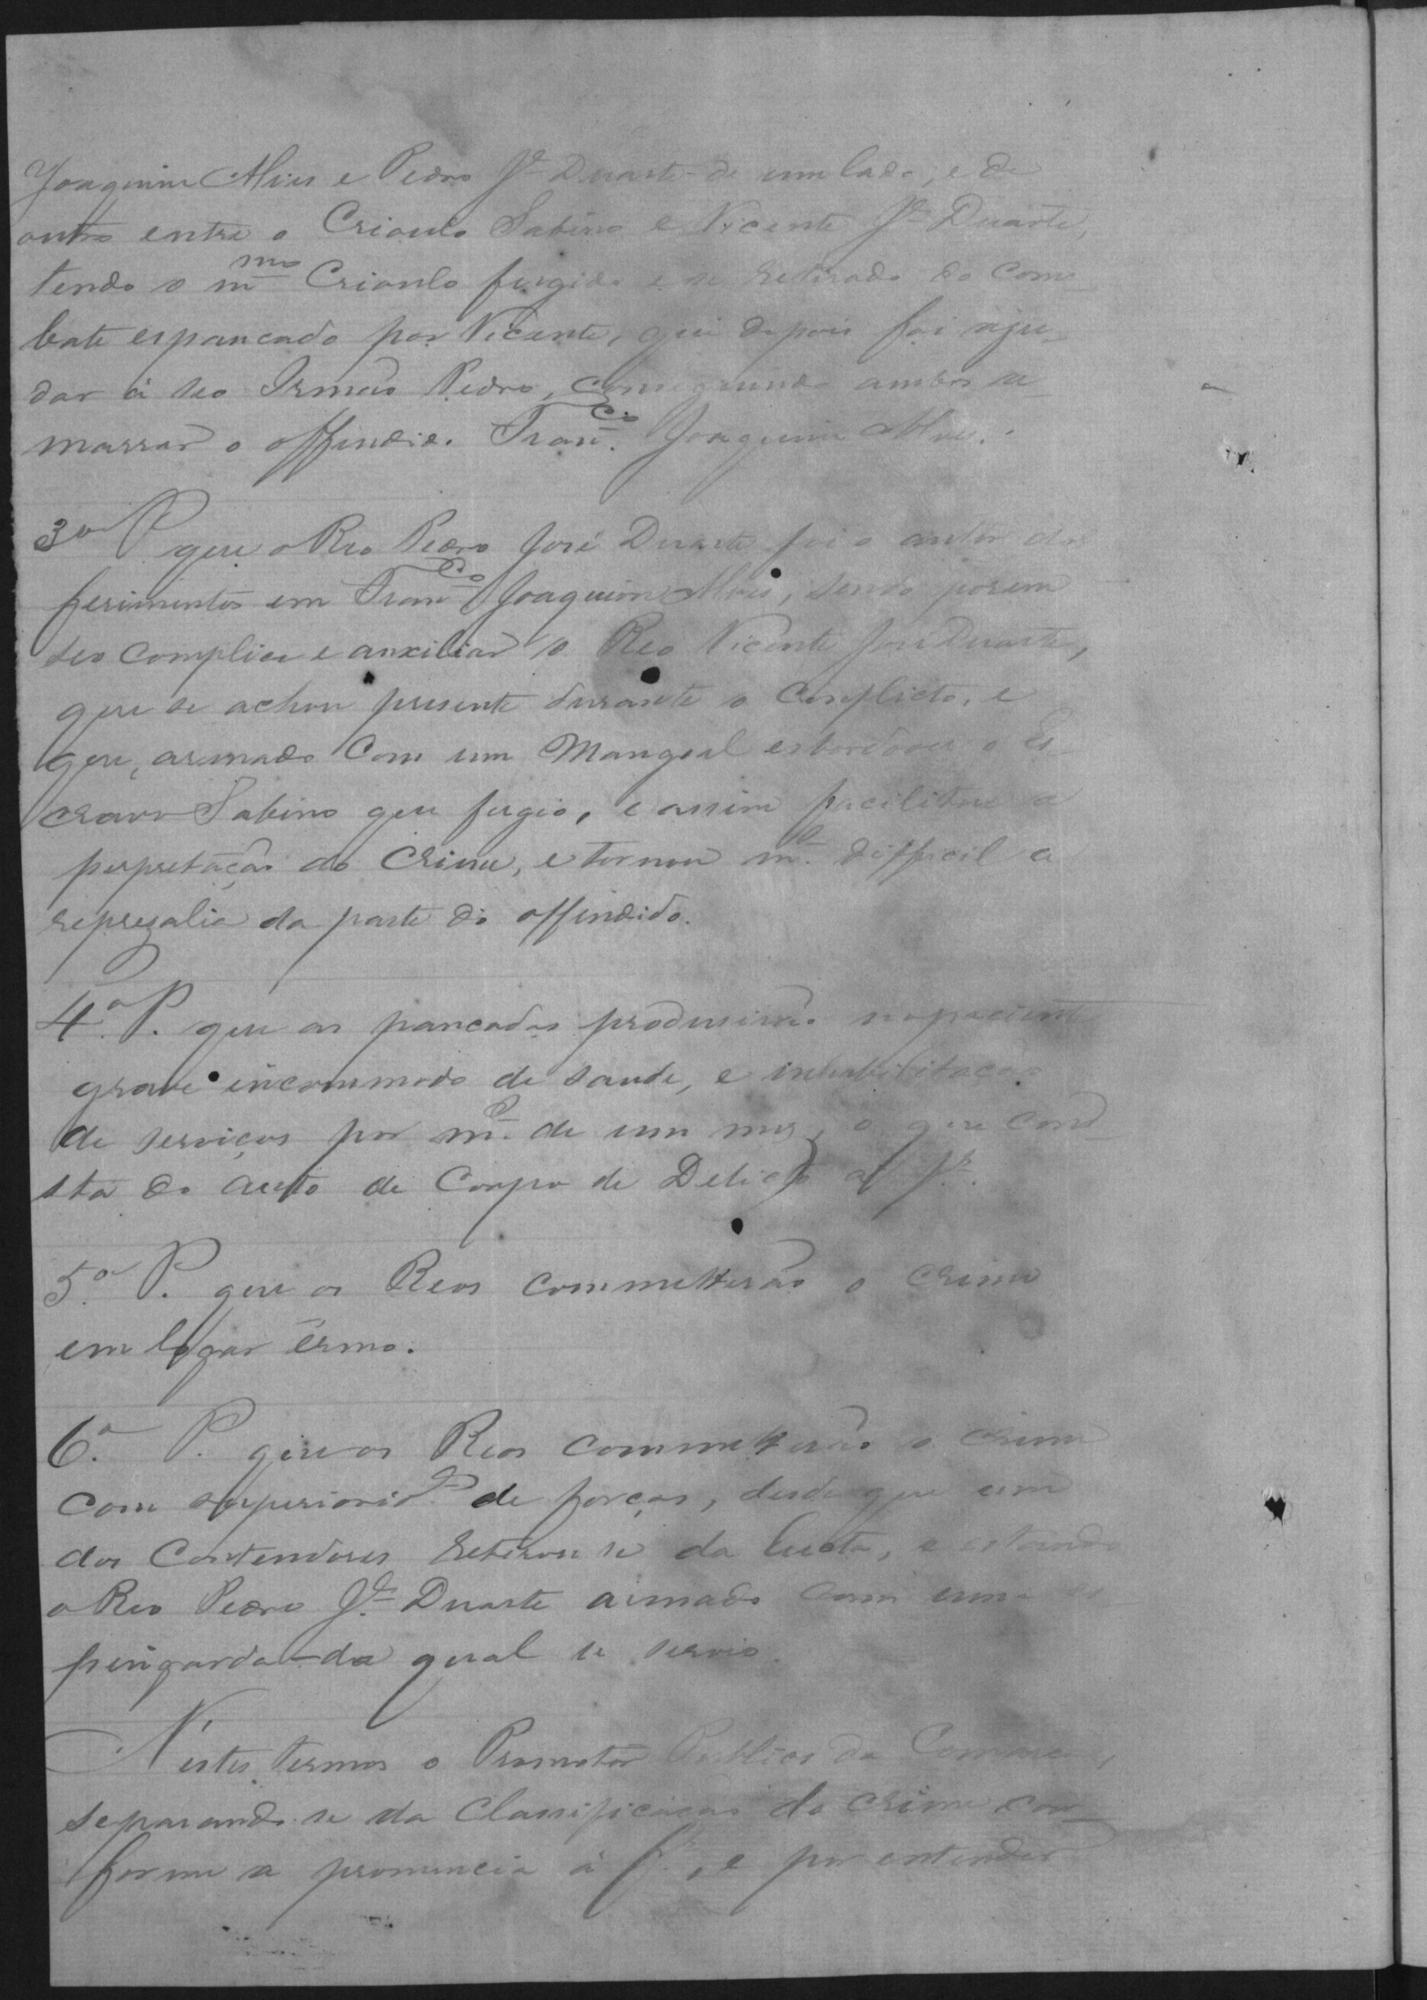 Joaquim Alves e Pedro Je Duarte de um lado, e de
outro entre o Crioulo Sabino e Vicente Je Duarte,
tendo o mmo Crioulo fugido e se retirado do com-
bate espancado por Vicente, que depois foi aju-
dar á seo Irmão Pedro, conseguindo ambos a-
marrar o offendido Franco Joaquim Alves.
3o P que o Reo Pedro José Duarte foi o autor dos
ferimentos em Franco Joaquim Alves, sendo porem
seo complice e auxiliar o Reo Vicente José Duarte,
que se achou presente durante o conflicto, e
que, armado com um Mangoal esbordoou o Es-
cravo Sabino que fugio, e assim facilitou a
perpretação do crime, e tornou ms difficil a
reprezalia da parte do offendido.
4o P. que as pancadas produsirão no paciente
grave incommodo de saude, e inhabilitação
de serviços por ms de um mez, o que cons-
sta do auto de Corpo de Delicto a f
5o P. que os Reos commetterão o crime
em logar êrmo.
6o P. que os Reos commetterão o crime
com superioride de forças, desde que um
dos contendores retirou se da lucta, e estando
o Reo Pedro Je Duarte armado com uma es-
pingarda da qual se servio.
Nestes termos o Promotor Publico da Comarca,
separando-se da classificação do crime con-
forme a pronuncia á f , e por entender